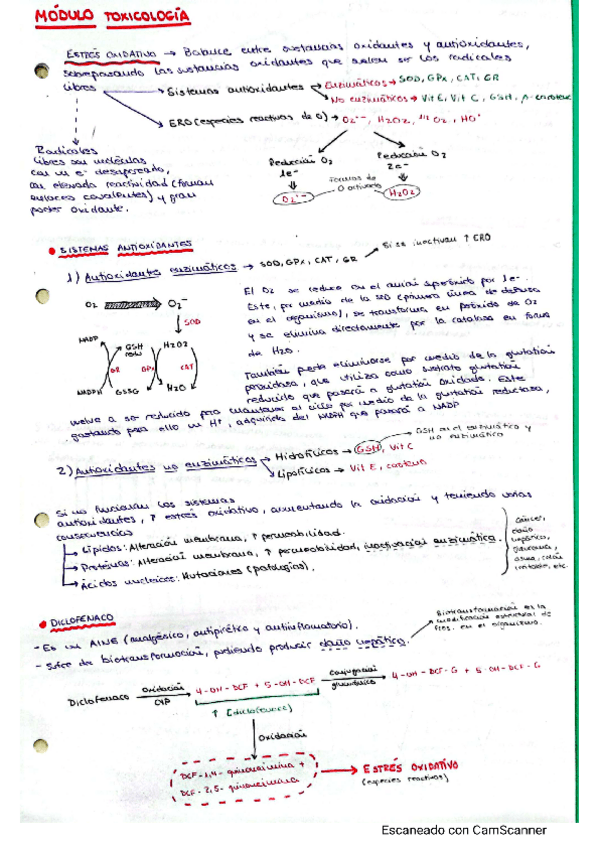 MÓDULO TOXICOLOGÍA
ESTRÉS OXIDATIVO → Balance entre sustancias oxidantes y antioxidantes,
sobrepasando las sustancias oxidantes que suelen ser los radicales
libres
→ Sistemas antioxidantes → Enzimáticos → SOD, GPx, CAT, GR
→ No enzimáticos → Vit E, Vit C, GSH, β-caroteno
→ ERO (especies reactivas de O) → O2·-, H2O2, 1/2 O2, HO·
Radicales
libres son moléculas
con un e- desapareado,
con elevada reactividad (forman
enlaces covalentes) y gran
poder oxidante.
Reducción O2
1e-
Reducción O2
2e-
Formas de
O activado
O2·-
H2O2
• SISTEMAS ANTIOXIDANTES
1) Antioxidantes enzimáticos → SOD, GPx, CAT, GR → Si se inactivan ↑ ERO
O2 → O2-
SOD
NADP GSH H2O2
GR GPx CAT
NADPH GSSG H2O
El O2 se reduce en el anión superóxido por 1e-
Este, por medio de la SOD (primera línea de defensa
en el organismo), se transforma en peróxido de O2
y se elimina directamente por la catalasa en forma
de H2O.
También puede eliminarse por medio de la glutatión
peroxidasa, que utiliza como sustrato glutatión
reducido que pasará a glutatión oxidado. Este
vuelve a ser reducido para mantener el ciclo por medio de la glutatión reductasa,
gastando para ello un H+, adquirido del NADPH que pasará a NADP
2) Antioxidantes no enzimáticos → Hidrofílicos → GSH, Vit C
GSH es el enzimático y
no enzimático
→ Lipofílicos → Vit E, caroteno
Si no funcionan los sistemas
antioxidantes, ↑ estrés oxidativo, aumentando la oxidación y teniendo varias
consecuencias
→ Lípidos: Alteración membrana, ↑ permeabilidad.
→ Proteínas: Alteración membrana, ↑ permeabilidad, inactivación enzimática.
→ Ácidos nucleicos: Mutaciones (patologías).
Cáncer,
daño
hepático,
asma,
etc.
• DICLOFENACO
- Es un AINE (analgésico, antipirético y antiinflamatorio).
- Sufre de biotransformación, pudiendo producir daño hepático.
Biotransformación es la
modificación estructural de
en el organismo.
Diclofenaco Oxidación CYP → 4-OH-DCF + 5-OH-DCF Conjugación glucurónico → 4-OH-DCF-G + 5-OH-DCF-G
↑ [diclofenaco]
Oxidación
DCF-1,4-quinonimina +
DCF-2,5-quinonimina
→ ESTRÉS OXIDATIVO
(especies reactivas)
Escaneado con CamScanner